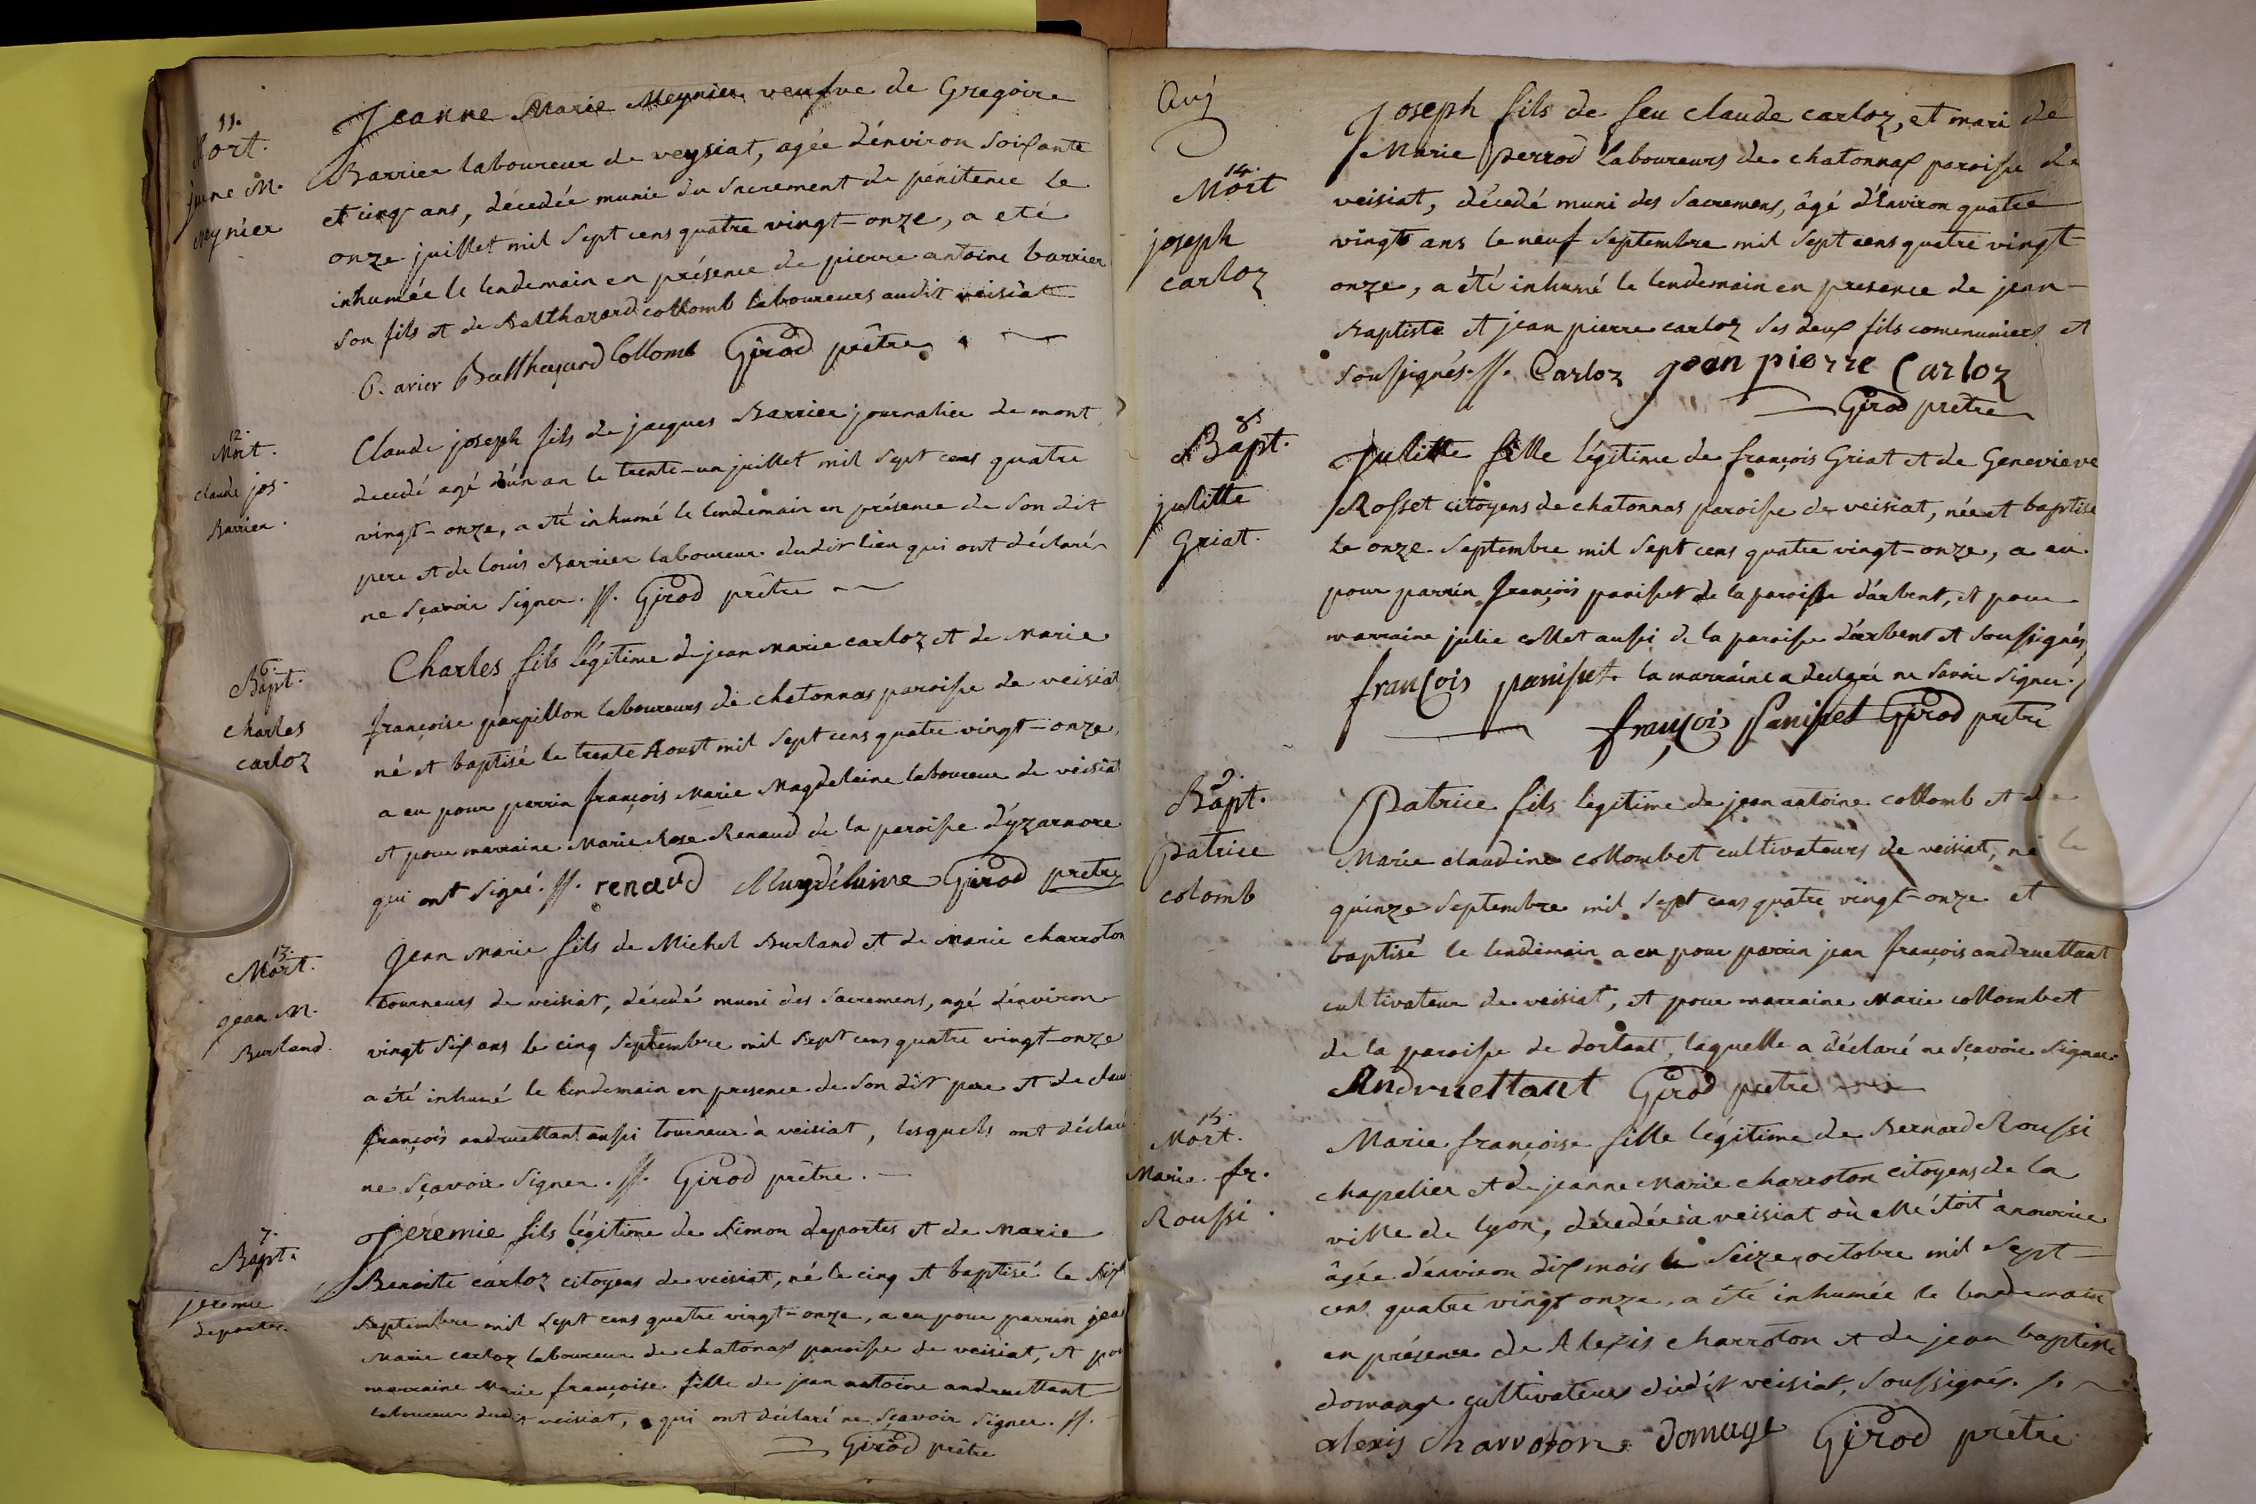 11.
Mort.
Jeanne M.
Meynier
Jeanne Marie Meynier veufve de Gregoire
Barrier laboureur de veysiat, agée d'énviron soixante
et cinq ans, décedée munie du sacrement de pénitence le
onze juillet mil sept cens quatre vingt-onze, a eté
inhumée le lendemain en présence de pierre antoine barrier
son fils et de Balthazard collomb laboureurs audit veisiat
P. arier Balthazard Collomb Girod prêtre
12.
Mort.
claude jos.
Barrier.
Claude joseph fils de jacques Barrier journalier de mont
decedé agé d'un an le trente-un juillet mil sept cens quatre
vingt-onze, a été inhumé le lendemain en présence de son dit
pere et de louis Barrier laboureur dudit lieu qui ont déclaré
ne sçavoir signer. ff. Girod prêtre
6.
Bapt.
charles
carloz
Charles fils légitime de jean marie carloz et de marie
françoise parpillon laboureurs de chatonnas paroisse de veisiat
né et baptisé le trente Aoust mil sept cens quatre vingt-onze,
a eu pour parrin françois marie Magdelaine laboureur de veisiat
et pour marraine Marie Rose Renaud de la paroisse d'yzarnore
qui ont signé. ff. renaud Magdelaine Girod prêtre
13.
Mort.
jean M.
Burland.
Jean marie fils de Michel Burland et de marie charroton
tourneurs de veisiat, décedé muni des sacremens, agé d'énviron
vingt six ans le cinq septembre mil sept cens quatre vingt-onze
a été inhumé le lendemain en presence de son dit pere et de claude
françois andruettant aussi tourneur à veisiat, lesquels ont déclaré
ne sçavoir signer. ff. Girod prêtre.
7.
Bapt.
jeremie
deportes.
Jeremie fils légitime de simon deportes et de Marie
Benoite carloz citoyens de veisiat, né le cinq et baptisé le six
septembre mil sept cens quatre vingt-onze, a eu pour parrin jean
Marie carloz laboureur de chatonas paroisse de veisiat, et pour
marraine Marie françoise fille de jean antoine andruettant
laboureur dudit veisiat, qui ont déclaré ne sçavoir signer. ff.
Girod prêtre
14.
Mort
joseph
carloz
Joseph fils de feu claude carloz, et mari de
Marie perrod laboureurs de chatonnas paroisse de
veisiat, décedé muni des sacremens, âgé d'Environ quatre
vingts ans le neuf septembre mil sept cens quatre vingt
onze, a été inhumé le lendemain en presence de jean-
Baptiste et jean pierre carloz ses deux fils communiers et
soussignés. ff. Carloz jean pierre Carloz
Girod prêtre
8.
Bapt.
julitte
Griat.
Julitte fille légitime de françois Griat et de Genevieve
Rosset citoyens de chatonnas paroisse de veisiat, née et baptisée
le onze septembre mil sept cens quatre vingt-onze, a eu
pour parrin françois panisset de la paroisse d'arbent, et pour
marraine julie collet aussi de la paroisse d'arbent et soussignés,
françois panisset. la marraine a declaré ne savoir signer.
françois Panisset Girod prêtre
9.
Bapt.
patrice
colomb
Patrice fils légitime de jean antoine collomb et de
Marie claudine collombet cultivateurs de veisiat, né le
quinze septembre mil sept cens quatre vingt-onze et
baptisé le lendemain a eu pour parrin jean françois andruettant
cultivateur de veisiat, et pour marraine Marie collombet
de la paroisse de dortant, laquelle a déclaré ne sçavoir signer
Andruettant Girod prêtre
15.
Mort.
Marie. fr.
Roussi.
Marie françoise fille légitime de Bernard Roussi
chapelier et de jeanne Marie charroton citoyens de la
ville de lyon, décedée à veisiat où elle étoit à nourrice
âgée d'environ dix mois le seize octobre mil sept
cens quatre vingt onze, a été inhumée le lendemain
en présence de Alexis charroton et de jean baptiste
domange cultivateurs dudit veisiat, soussignés. ff.
alexis charroton domage Girod prêtre